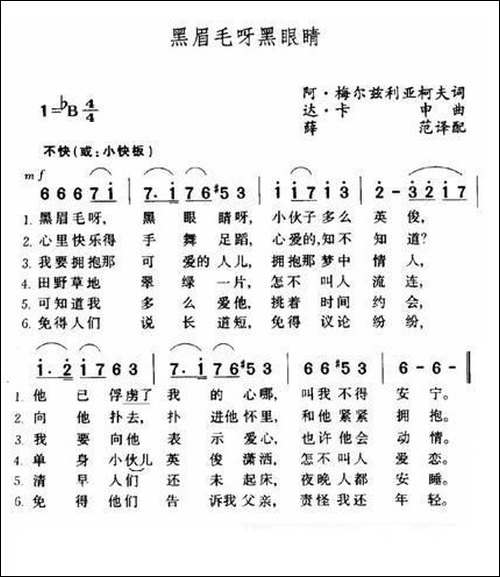 黑眉毛呀黑眼睛
阿·梅尔兹利亚柯夫词
1=♭B 4/4
达·卡 申 曲
薛 范译配
不快(或:小快板)
mf
6 6 6 7 1 | 7· 1 7 6 #5 3 | 1 1 7 1 3 | 2 - 3 2 1 7 |
1. 黑眉毛呀, 黑 眼 睛呀, 小伙子多么 英俊,
2. 心里快乐得 手 舞 足蹈, 心爱的,知不 知道?
3. 我要拥抱那 可 爱的人儿, 拥抱那梦中 情人,
4. 田野草地 翠 绿 一片, 怎不 叫人 流连,
5. 可知道我 多 么 爱他, 挑着 时间 约会,
6. 免得人们 说 长 道短, 免得 议论 纷纷,
1· 2 1 7 6 3 | 1· 7 1 7 6 #5 3 | 6 6 #5 3 | 6 - 6 - ‖
1. 他 已 俘虏了 我 的 心哪, 叫我 不得 安宁。
2. 向 他 扑去, 扑 进他 怀里, 和他 紧紧 拥抱。
3. 我 要 向他 表 示 爱心, 也许 他会 动情。
4. 单 身 小伙儿 英 俊 潇洒, 怎不 叫人 爱恋。
5. 清 早 人们 还 未 起床, 夜晚 人都 安睡。
6. 免 得 他们 告 诉我 父亲, 责怪 我还 年轻。